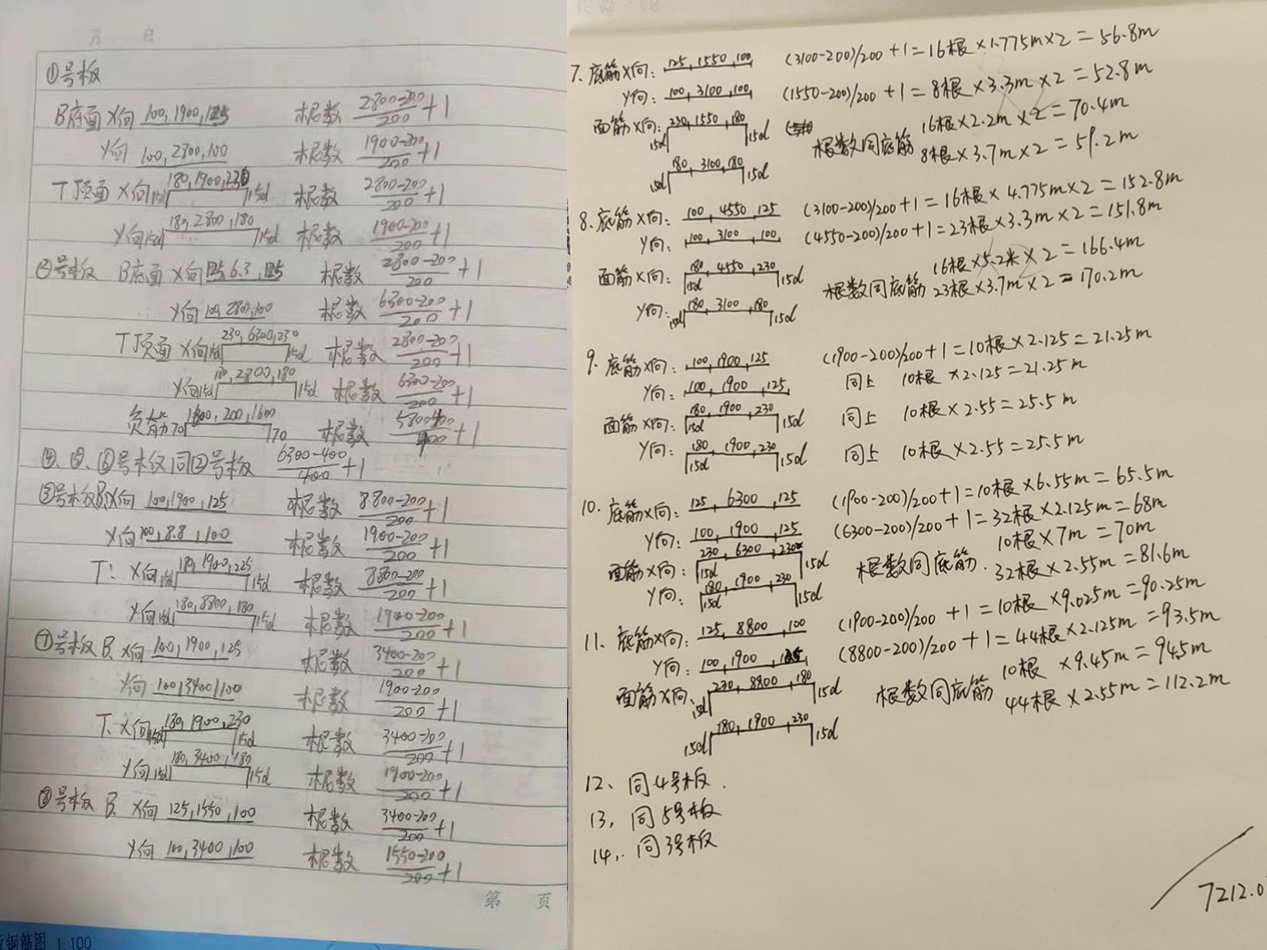 月 日
①号板
B底面 X向 100,1900,125 根数 (2800-200)/200+1
Y向 100,2800,100 根数 (1900-200)/200+1
T顶面 X向15d 180,1900,230 15d 根数 (2800-200)/200+1
Y向15d 180,2800,180 15d 根数 (1900-200)/200+1
②号板 B底面 X向125 6.3,125 根数 (2800-200)/200+1
Y向100,2800,100 根数 (6300-200)/200+1
T顶面 X向15d 230,6300,230 15d 根数 (2800-200)/200+1
Y向15d 180,2800,180 15d 根数 (6300-200)/200+1
负筋70 1600,200,1600 70 根数 +1
号板同②号板 (6300-400)/400+1
③号板B X向 100,1900,125 根数 (8800-200)/200+1
Y向100,8.8,100 根数 (1900-200)/200+1
T: X向15d 180,1900,225 15d 根数 (8800-200)/200+1
Y向15d 180,8800,180 15d 根数 (1900-200)/200+1
⑦号板 B X向 100,1900,125 根数 (3400-200)/200+1
Y向 100,3400,100 根数 (1900-200)/200+1
T. X向15d 180,1900,230 15d 根数 (3400-200)/200+1
Y向15d 180,3400,180 15d 根数 (1900-200)/200+1
⑧号板 B X向 125,1550,100 根数 (3400-200)/200+1
Y向 100,3400,100 根数 (1550-200)/200+1
第 页
钢筋图 1:100
7. 底筋X向: 125,1550,100 (3100-200)/200+1=16根×1.775m×2=56.8m
Y向: 100,3100,100 (1550-200)/200+1=8根×3.3m×2=52.8m
面筋X向: 15d 230,1550,180 15d 根数同底筋 16根×2.2m×2=70.4m
15d 180,3100,180 15d 8根×3.7m×2=59.2m
8. 底筋X向: 100,4550,125 (3100-200)/200+1=16根×4.775m×2=152.8m
Y向: 100,3100,100 (4550-200)/200+1=23根×3.3m×2=151.8m
面筋X向: 15d 180,4550,230 15d 根数同底筋 16根×5.2×2=166.4m
Y向: 15d 180,3100,180 15d 23根×3.7m×2=170.2m
9. 底筋X向: 100,1900,125 (1900-200)/200+1=10根×2.125=21.25m
Y向: 100,1900,125 同上 10根×2.125=21.25m
面筋X向: 15d 180,1900,230 15d 同上 10根×2.55=25.5m
Y向: 15d 180,1900,230 15d 同上 10根×2.55=25.5m
10. 底筋X向: 125,6300,125 (1900-200)/200+1=10根×6.55m=65.5m
Y向: 100,1900,125 (6300-200)/200+1=32根×2.125m=68m
面筋X向: 15d 230,6300,230 15d 根数同底筋. 10根×7m=70m
Y向: 15d 180,1900,230 15d 32根×2.55m=81.6m
11. 底筋X向: 125,8800,100 (1900-200)/200+1=10根×9.025m=90.25m
Y向: 100,1900,125 (8800-200)/200+1=44根×2.125m=93.5m
面筋X向: 15d 230,8800,180 15d 根数同底筋 10根×9.45m=94.5m
15d 180,1900,230 15d 44根×2.55m=112.2m
12、同4号板.
13、同5号板
14、同3号板
7212.0